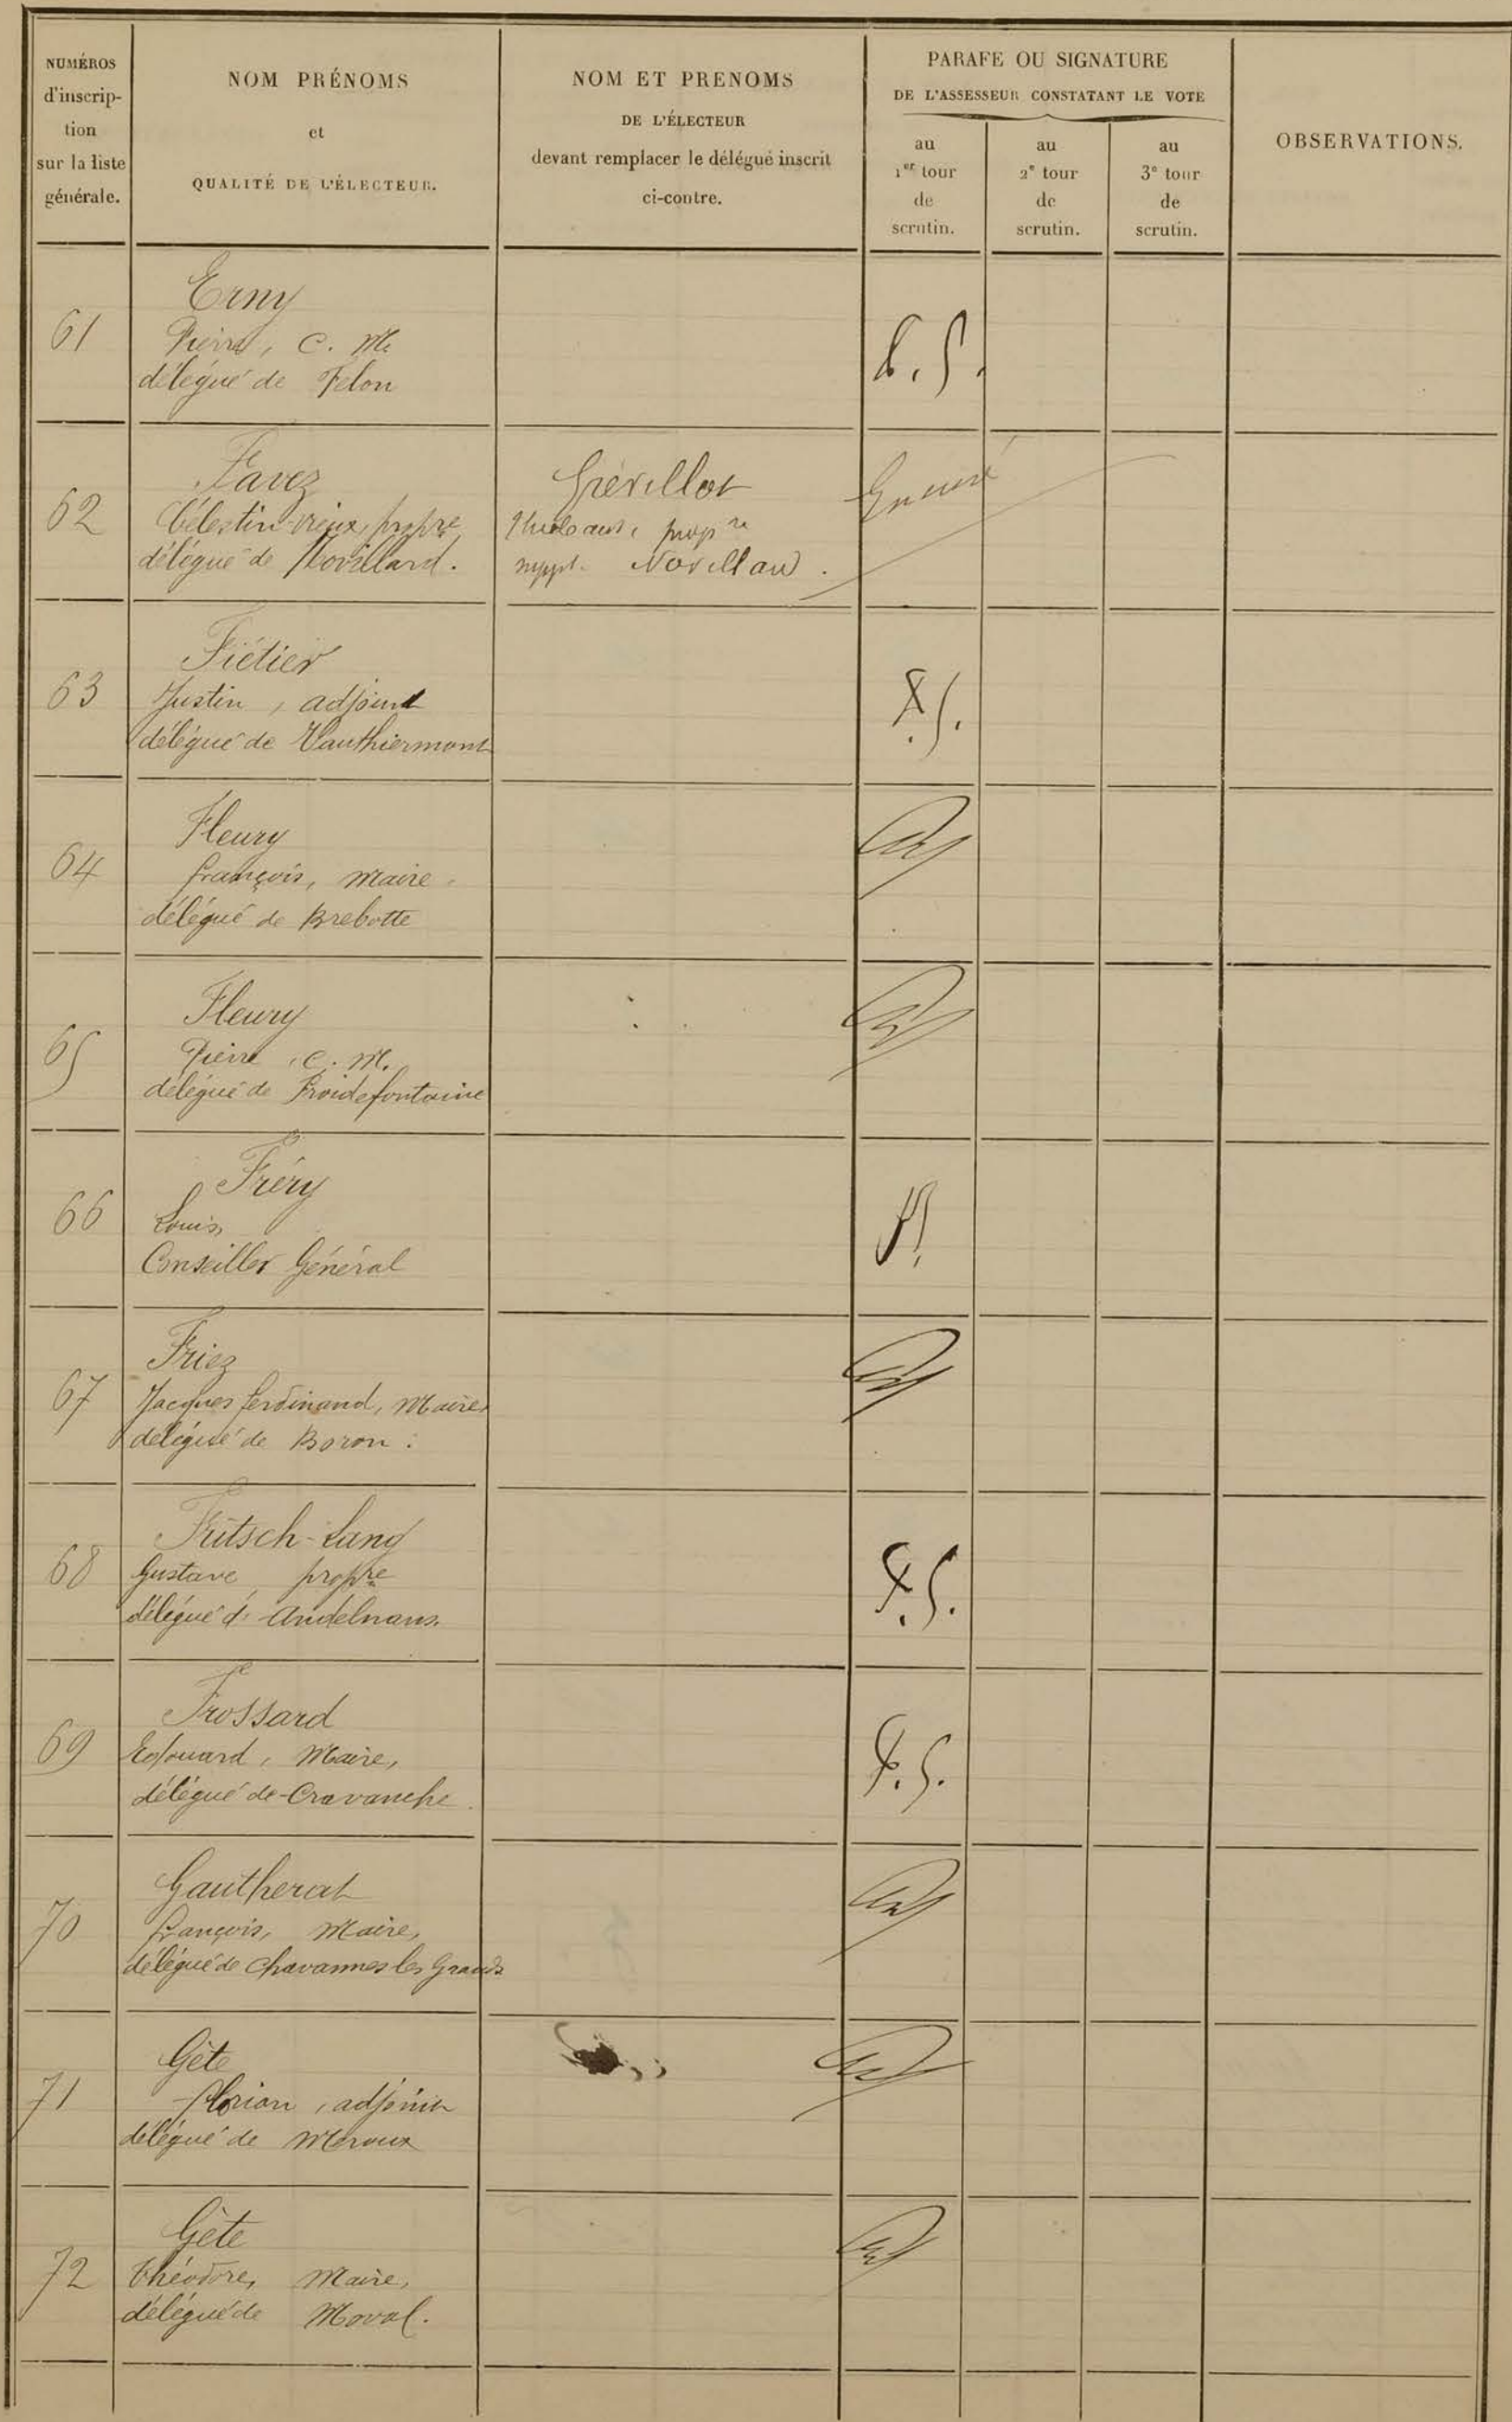 NUMÉROS
d'inscrip-
tion
sur la liste
générale.
NOM PRÉNOMS
et
QUALITÉ DE L'ÉLECTEUR.
NOM ET PRENOMS
DE L'ÉLECTEUR
devant remplacer le délégué inscrit
ci-contre.
PARAFE OU SIGNATURE
DE L'ASSESSEUR CONSTATANT LE VOTE
au
1er tour
de
scrutin.
au
2e tour
de
scrutin.
au
3e tour
de
scrutin.
OBSERVATIONS.
61
Erny
Pierre, C. M.
délégué de Felon
62
Favez
Célestin-vieux, propre
délégué de Novillard.
Grévillot
propre
suppt. Novillard.
63
Fiétier
Justin, adjoint
délégué de Vauthiermont
64
Fleury
françois, Maire
délégué de Brebotte
65
Fleury
Pierre, C. M.
délégué de Froidefontaine
66
Fréry
Louis,
Conseiller Général
67
Friez
Jacques ferdinand, Maire,
délégué de Boron.
68
Fritsch-Lang
Gustave, propre
délégué d'Andelnans.
F. S.
69
Frossard
Edouard, Maire,
délégué de Cravanche.
F. S.
70
Gautherat
françois, Maire,
délégué de Chavannes les Grands
71
Gète
florian, adjoint
délégué de Meroux
72
Gète
théodore, Maire,
délégué de Moval.